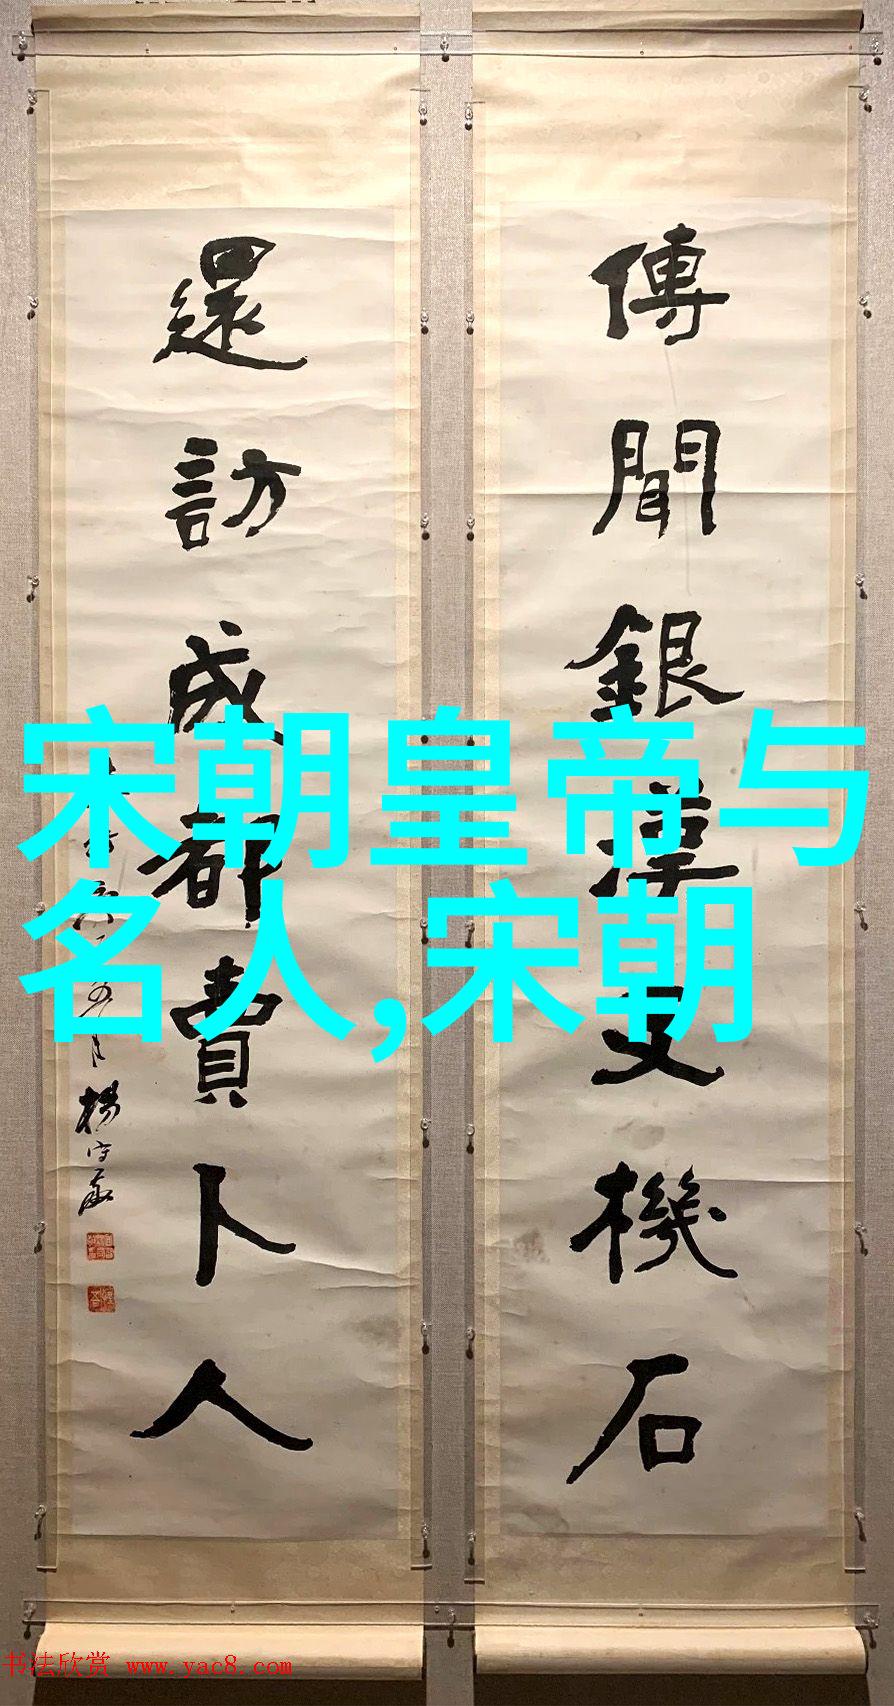 傳聞銀漢支機石
還訪成都賣卜人
楊守敬
宋朝皇帝与
名人,宋朝
书法欣赏 www.yac8.com